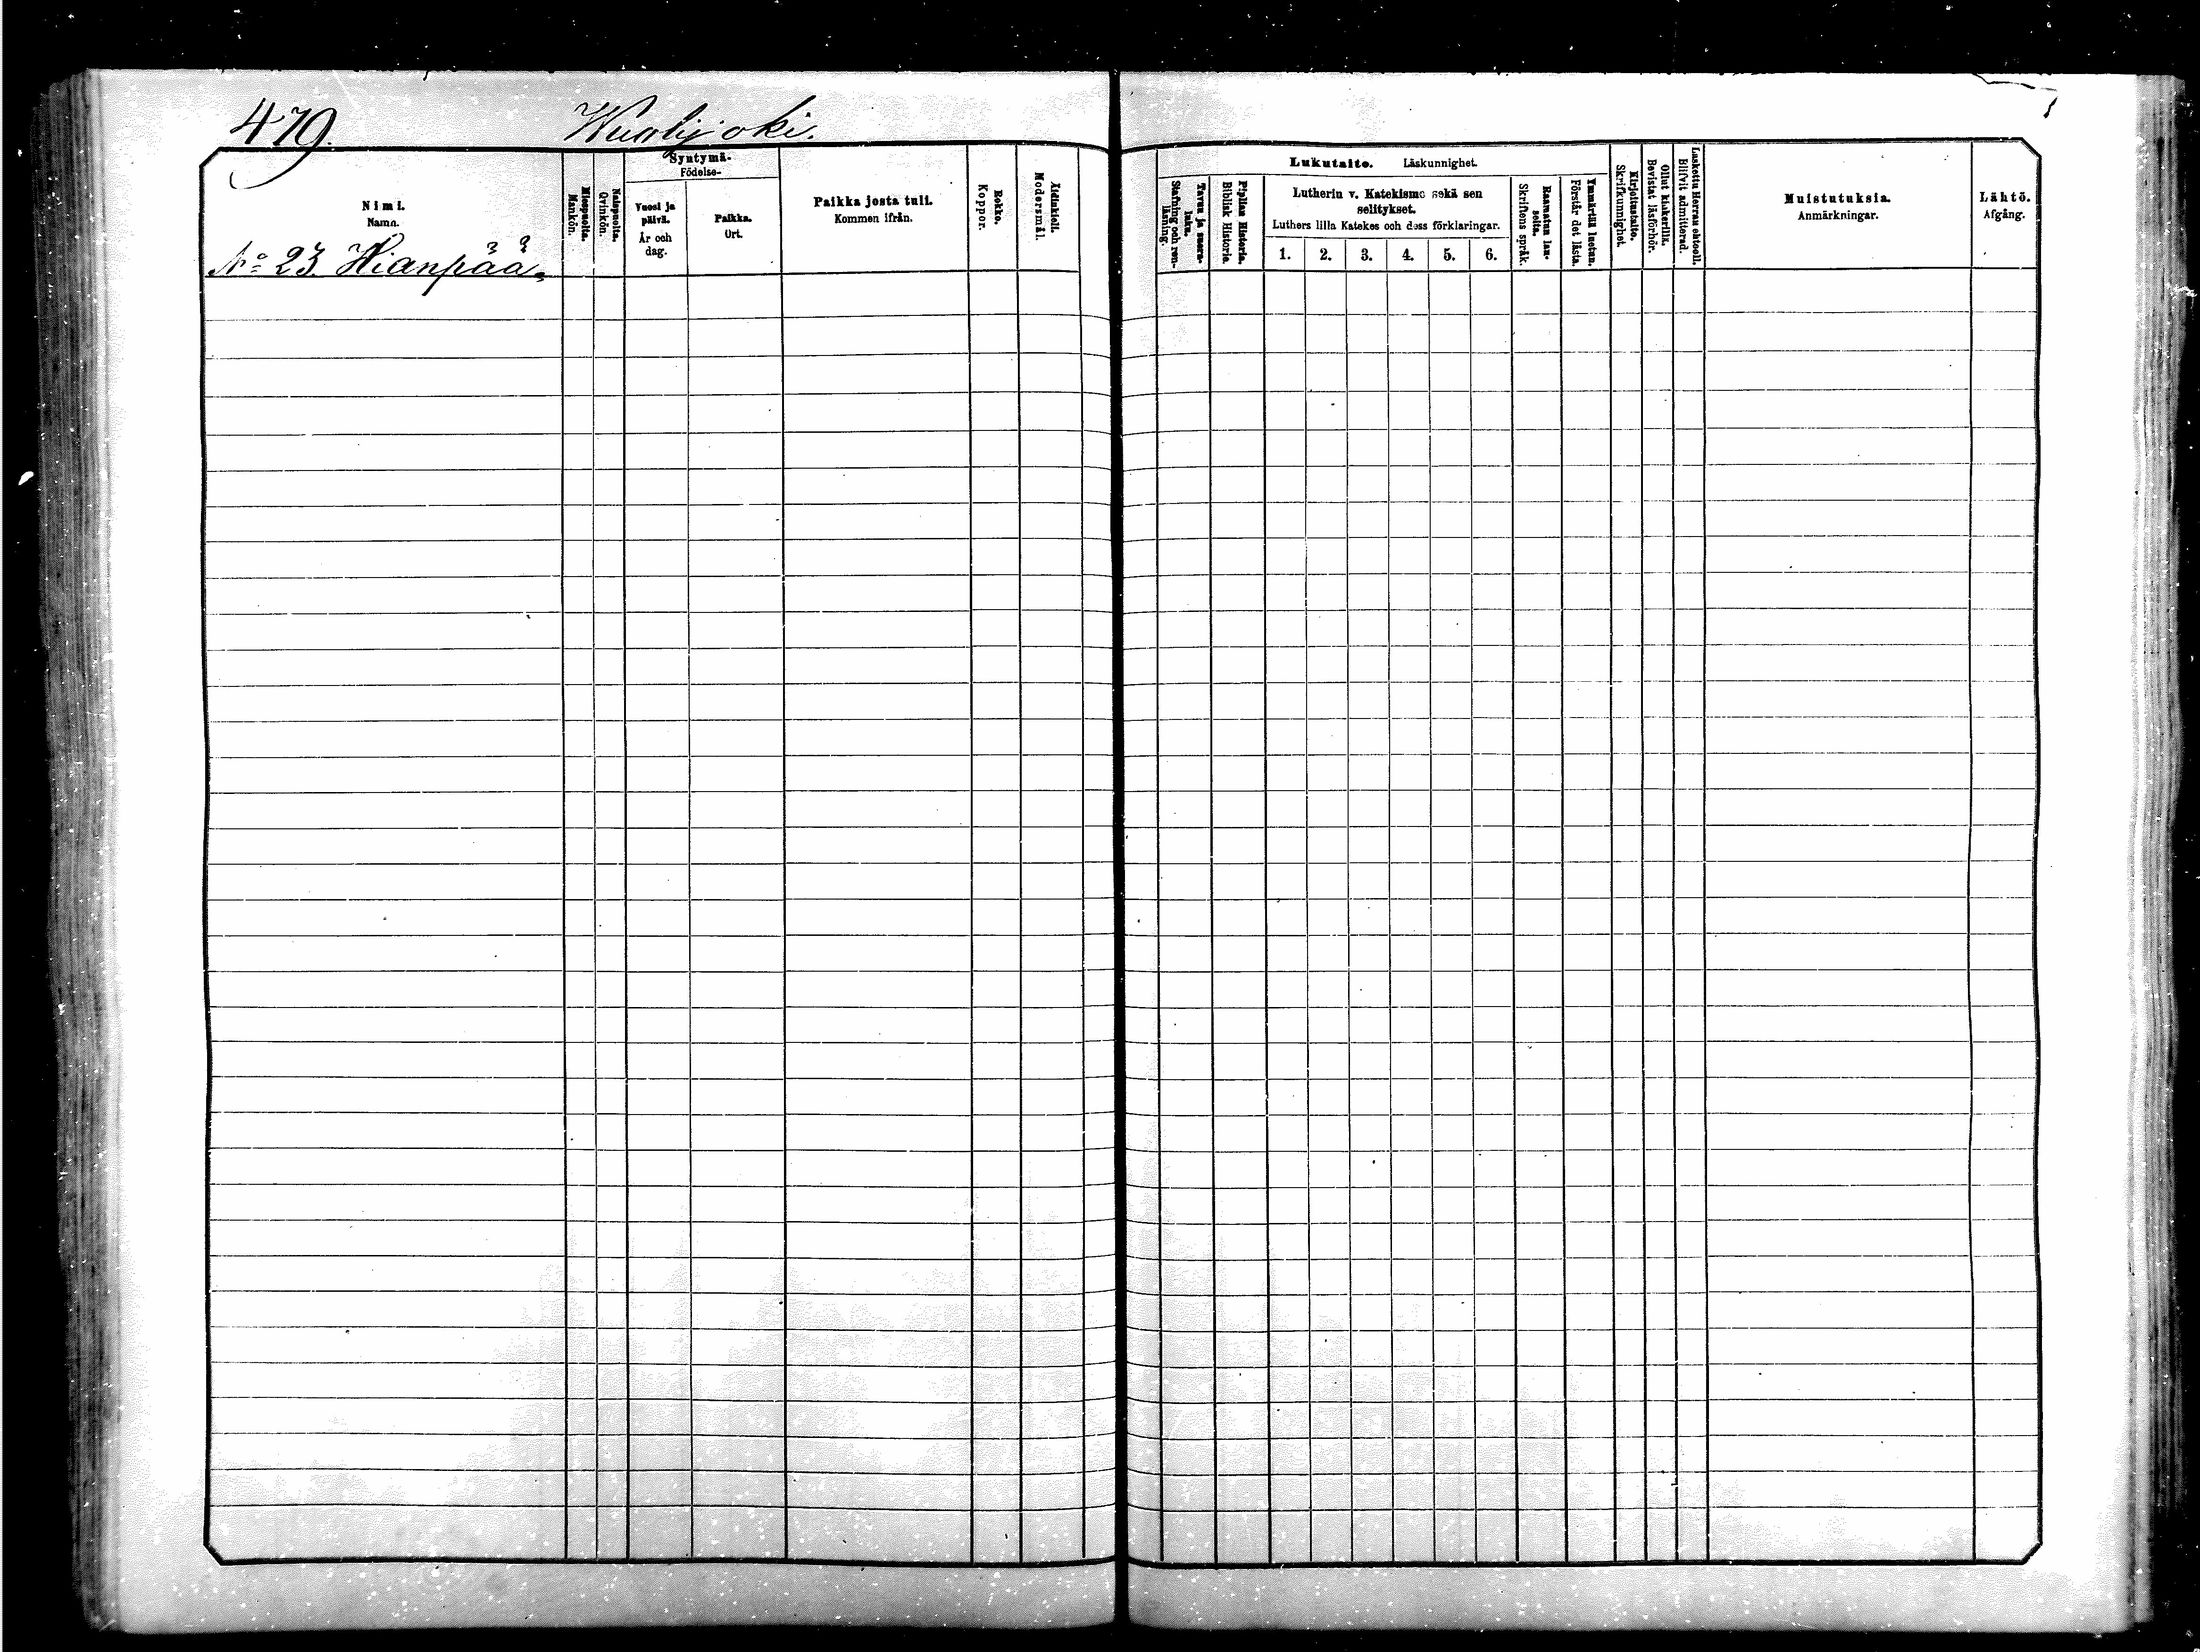 479. Wuolijoki.
Syntymä-
Födelse-
Nimi.
Namn.
Miespuolta.
Mankön.
Naispuolta.
Qvinkön.
Vuosi ja
päivä.
År och
dag.
Paikka.
Ort.
Paikka josta tuli.
Kommen ifrån.
Rokko.
Koppor.
Äidinkieli.
Modersmål.
No 23. Hianpää
Lukutaito. Läskunnighet.
Tavuu ja suora-
luku.
Stafning och ren-
läsning.
Piplian Historia.
Biblisk Historia.
Lutherin v. Katekismo sekä sen
selitykset.
Luthers lilla Katekes och dess förklaringar.
1. 2. 3. 4. 5. 6.
Raamatun lau-
seita.
Skriftens språk.
Ymmärtää luetun.
Förstår det lästa.
Kirjoitustaito.
Skrifkunnighet.
Ollut kinkerillä.
Bevistat läsförhör.
Laskettu Herran ehtooll.
Blifvit admitterad.
Muistutuksia.
Anmärkningar.
Lähtö.
Afgång.